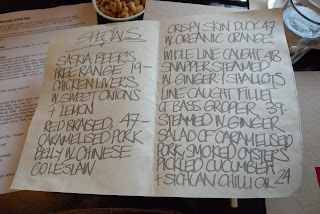 SPECIALS
SASKIA BEER'S
FREE RANGE 19-
CHICKEN LIVERS
IN SWEET ONIONS
+ LEMON
RED BRAISED, 47-
CARAMELISED PORK
BELLY IN CHINESE
COLESLAW
CRISPY SKIN DUCK 47
IN ORGANIC ORANGE
WHOLE LINE CAUGHT 48
SNAPPER STEAMED
IN GINGER + SHALLOTS
LINE CAUGHT FILLET
OF BASS GROPER 39-
STEAMED IN GINGER
SALAD OF CARAMELISED
PORK SMOKED OYSTERS
PICKLED CUCUMBER
+ SICHUAN CHILLI OIL 24